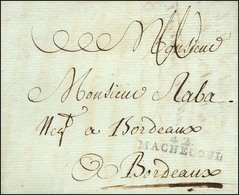 Monsieur
Monsieur Raba
Neg.t a Bordeaux
42
MACHECOUL
a Bordeaux